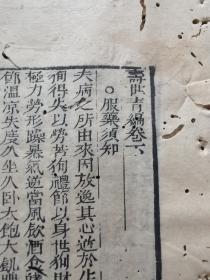 壽世青編卷下
○服藥須知
夫病之所由來因放逸其心逆於
徇得失以勞苦徇禮節以身世徇財
極力勞形躁暴氣逆當風飲酒食
節溫涼失度久坐久卧大飽大飢